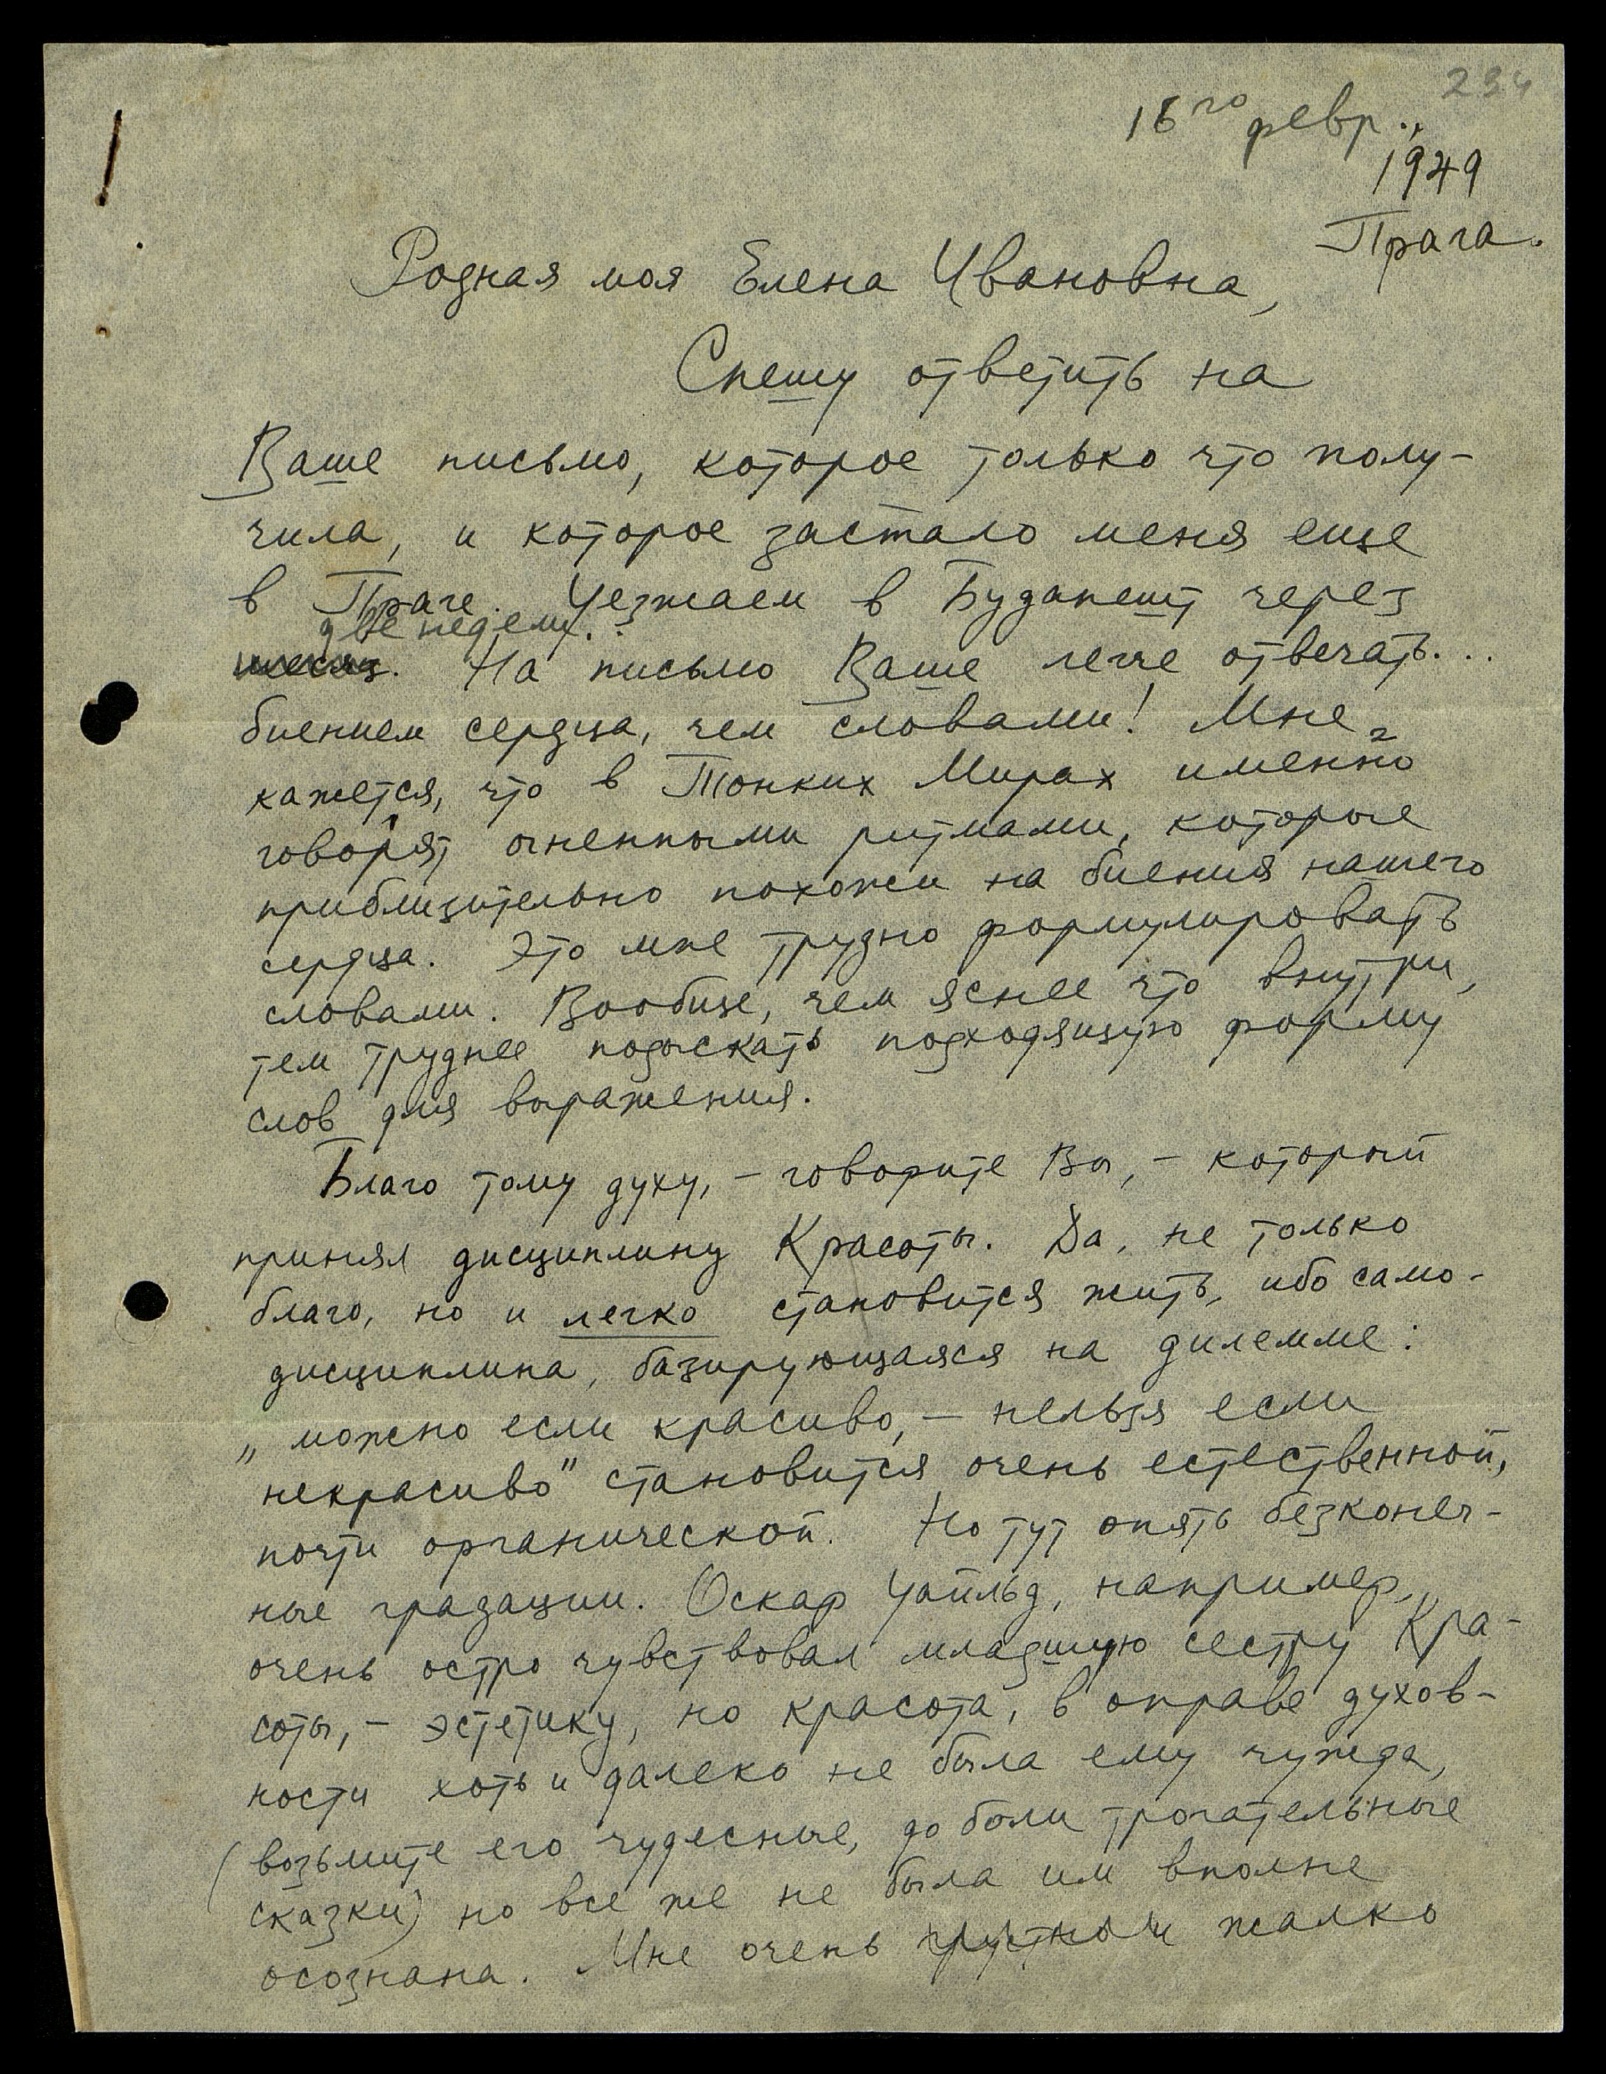 234
16го февр.,
1949
Прага.
Родная моя Елена Ивановна,
Спешу ответить на
Ваше письмо, которое только что полу-
чила, и которое застало меня еще
в Праге. Уезжаем в Будапешт через
две недели.
месяц. На письмо Ваше легче отвечать...
биением сердца, чем словами! Мне
кажется, что в Тонких Мирах именно
говорят огненными ритмами, которые
приблизительно похожи на биения нашего
сердца. Это мне трудно формулировать
словами. Вообще, чем яснее что внутри,
тем труднее подыскать подходящую форму
слов для выражения.
Благо тому духу, – говорите Вы, – который
принял дисциплину Красоты. Да, не только
благо, но и легко становится жить, ибо само-
дисциплина, базирующаяся на дилемме:
„можно если красиво, – нельзя если
некрасиво" становится очень естественной,
почти органической. Но тут опять безконеч-
ные градации. Оскар Уайльд, например,
очень остро чувствовал младшую сестру Кра-
соты, – эстетику, но красота, в оправе духов-
ности хоть и далеко не была ему чужда,
(возьмите его чудесные, до боли трогательные
сказки) но все же не была им вполне
осознана. Мне очень грустно и жалко